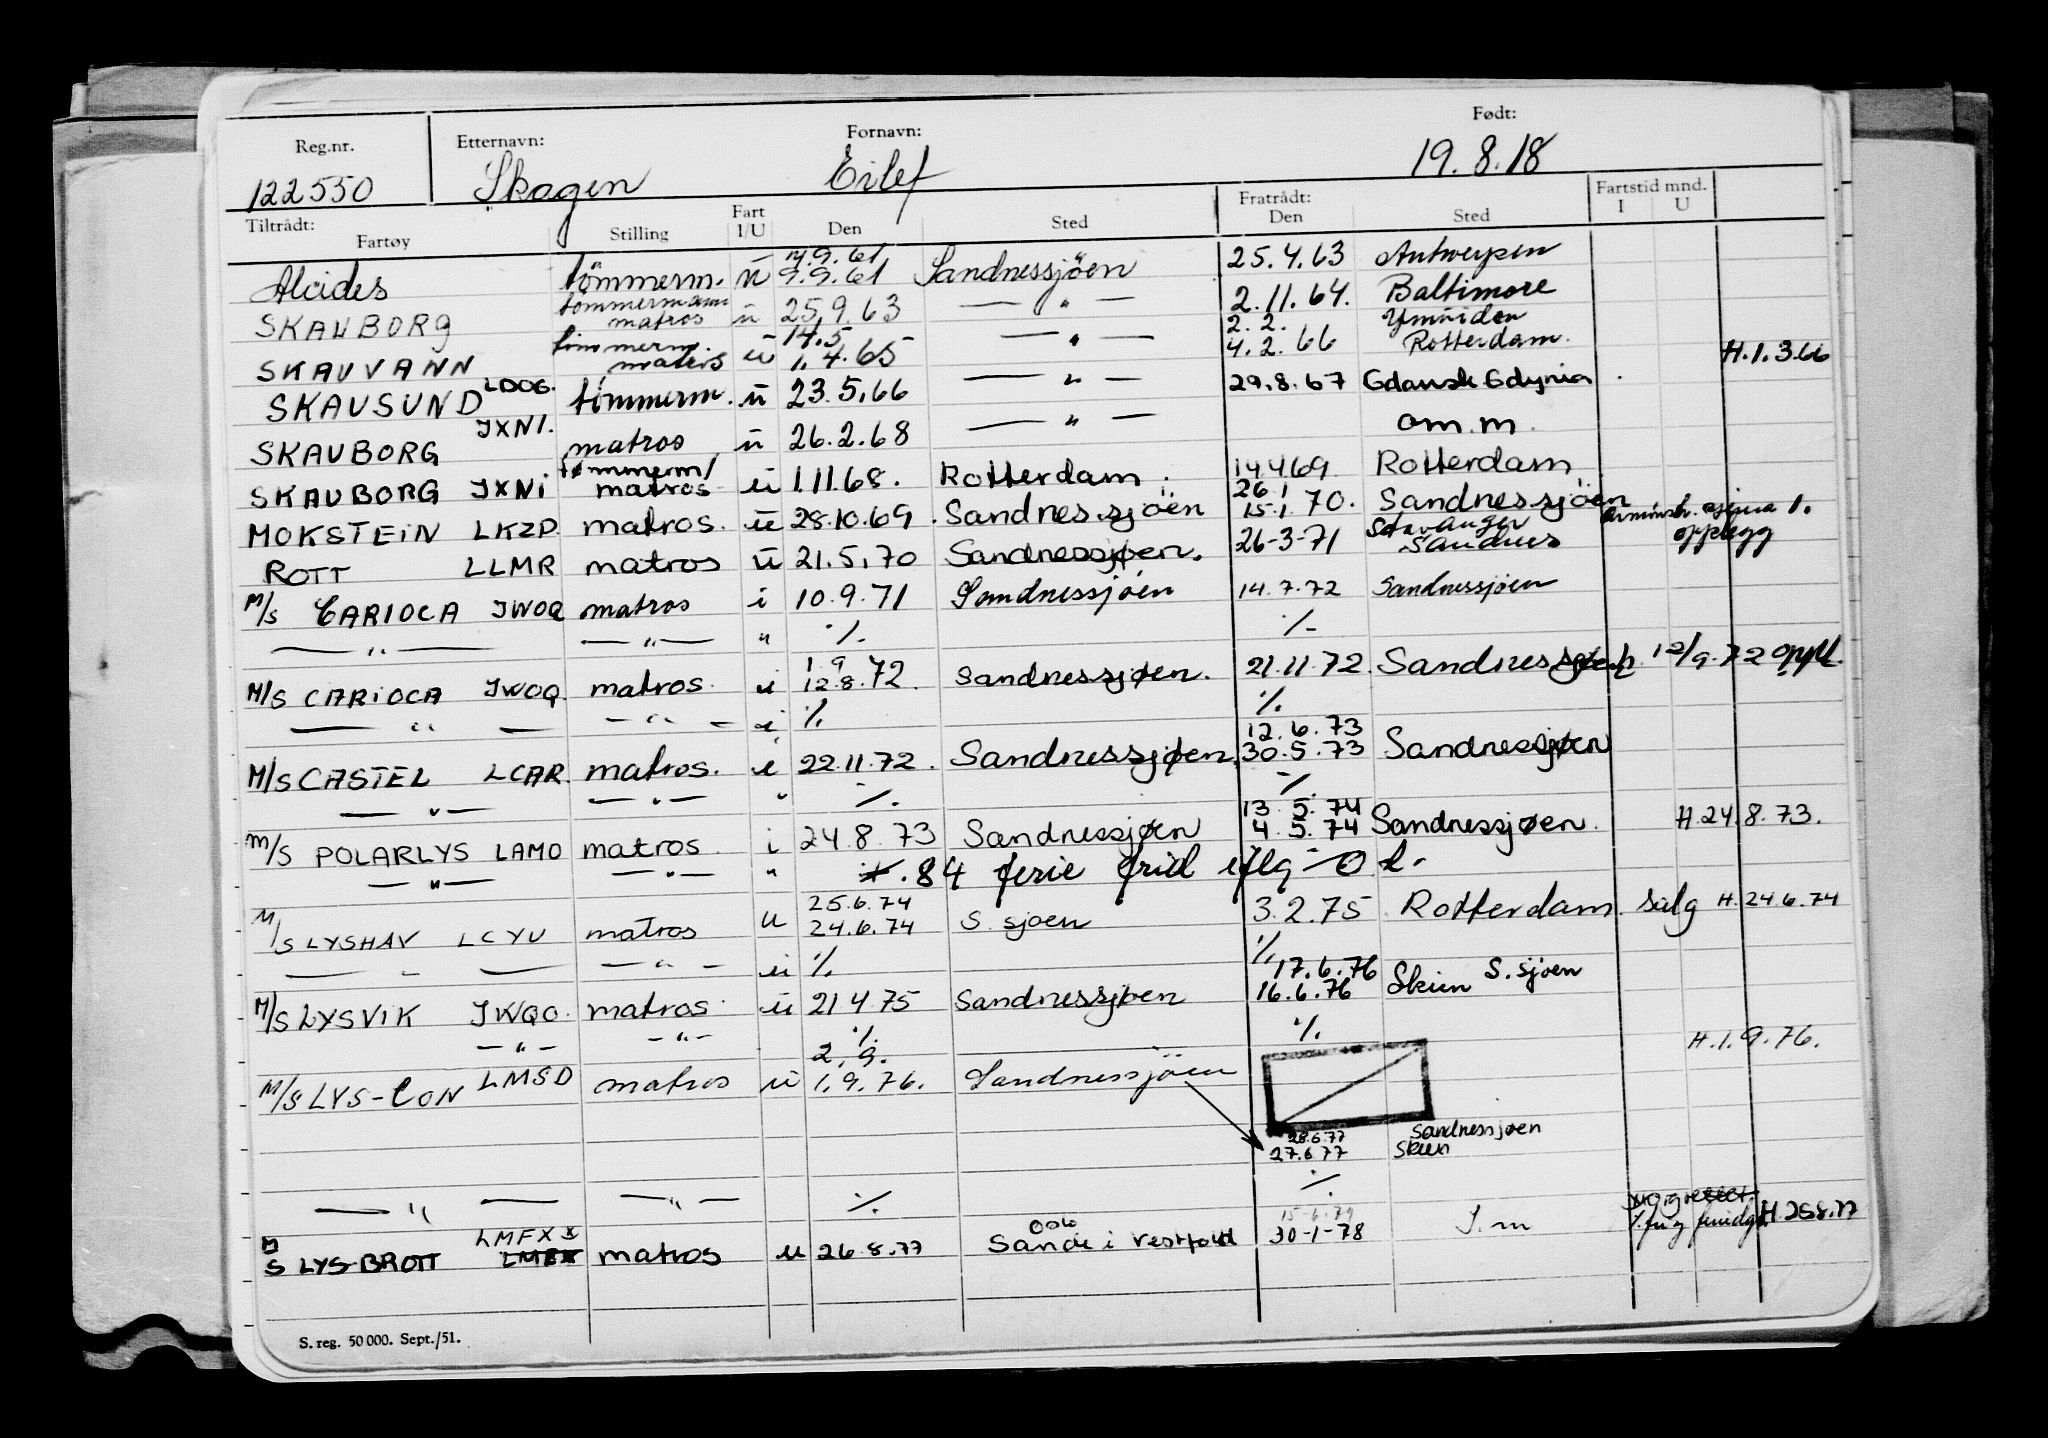 Reg.nr. Etternavn: Fornavn: Født:
122550 Skagen Eilef 19.8.18
Tiltrådt: Fratrådt: Fartstid mnd.
Fartøy Stilling Fart I/U Den Sted Den Sted I U
14.9.61
Alcides tömmerm. u 9.9.61 Sandnessjöen 25.4.63 Antwerpen
tömmermann
SKAUBORG matros u 25.9.63 — " — 2.11.64. Baltimore
tömmerm. 14.5 2.2. Ymuiden
SKAUVANN matros u 1.4.65 — " — 4.2.66 Rotterdam. H.1.3.66
SKAUSUND LDOG. tömmerm. u 23.5.66 — " — 29.8.67 Gdansk Gdynia
SKAUBORG JXNI. matros u 26.2.68 — " — om.m.
tømmerm/
SKAUBORG JXNI matros u 1.11.68. Rotterdam. 14.4.69 Rotterdam
26.1
MOKSTEIN LKZP matros. u 28.10.69. Sandnessjöen 15.1.70. Sandnessjöen
Stavanger opplegg
ROTT LLMR matros u 21.5.70 Sandnessjøen. 26-3-71 Sandnes
M/S CARIOCA JWOQ matros i 10.9.71 Sandnessjöen 14.7.72 Sandnessjöen
— " — — " — " ·/. ·/.
1.9
M/S CARIOCA JWOQ. matros. u 12.8.72. Sandnessjøen. 21.11.72. Sandnessjøen 12/9.72 oppl.
— " — — " — i ·/. ·/.
12.6.73
M/S CASTEL LCAR. matros. u 22.11.72. Sandnessjøen. 30.5.73 Sandnessjøen
— " — — " — " ·/. ·/.
13.5.74
M/S POLARLYS LAMO matros. i 24.8.73 Sandnessjøen 4.5.74 Sandnessjøen. H.24.8.73.
— " — — " — " ·/. 84 ferie frid iflg
25.6.74
M/S LYSHAV LCYU matros u 24.6.74 S. sjoen 3.2.75 Rotterdam. Salg H.24.6.74
— " — — " — u ·/. ·/.
17.6.76 S. sjoen
M/S LYSVIK JWQO. matros u 21.4.75 Sandnessjoen 16.6.76 Skien
— " — — " — ·/. ·/.
2.9. H.1.9.76.
M/S LYS-CON LMSD matros u 1.9.76. Sandnessjöen
28.6.77 Sandnessjøen
27.6.77 Skien
— " — — " — ·/. ·/.
LMFX Oslo 15-6-79
M/S LYS-BROTT matros u 26.8.77 Sande i Vestfold 30-1-78 S.m H.25.8.77
S. reg. 50 000. Sept./51.